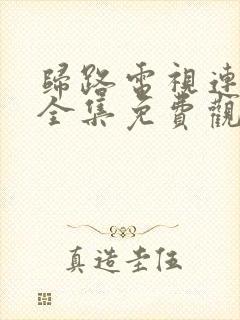 歸路電視連
全集免費觀
真造圭任